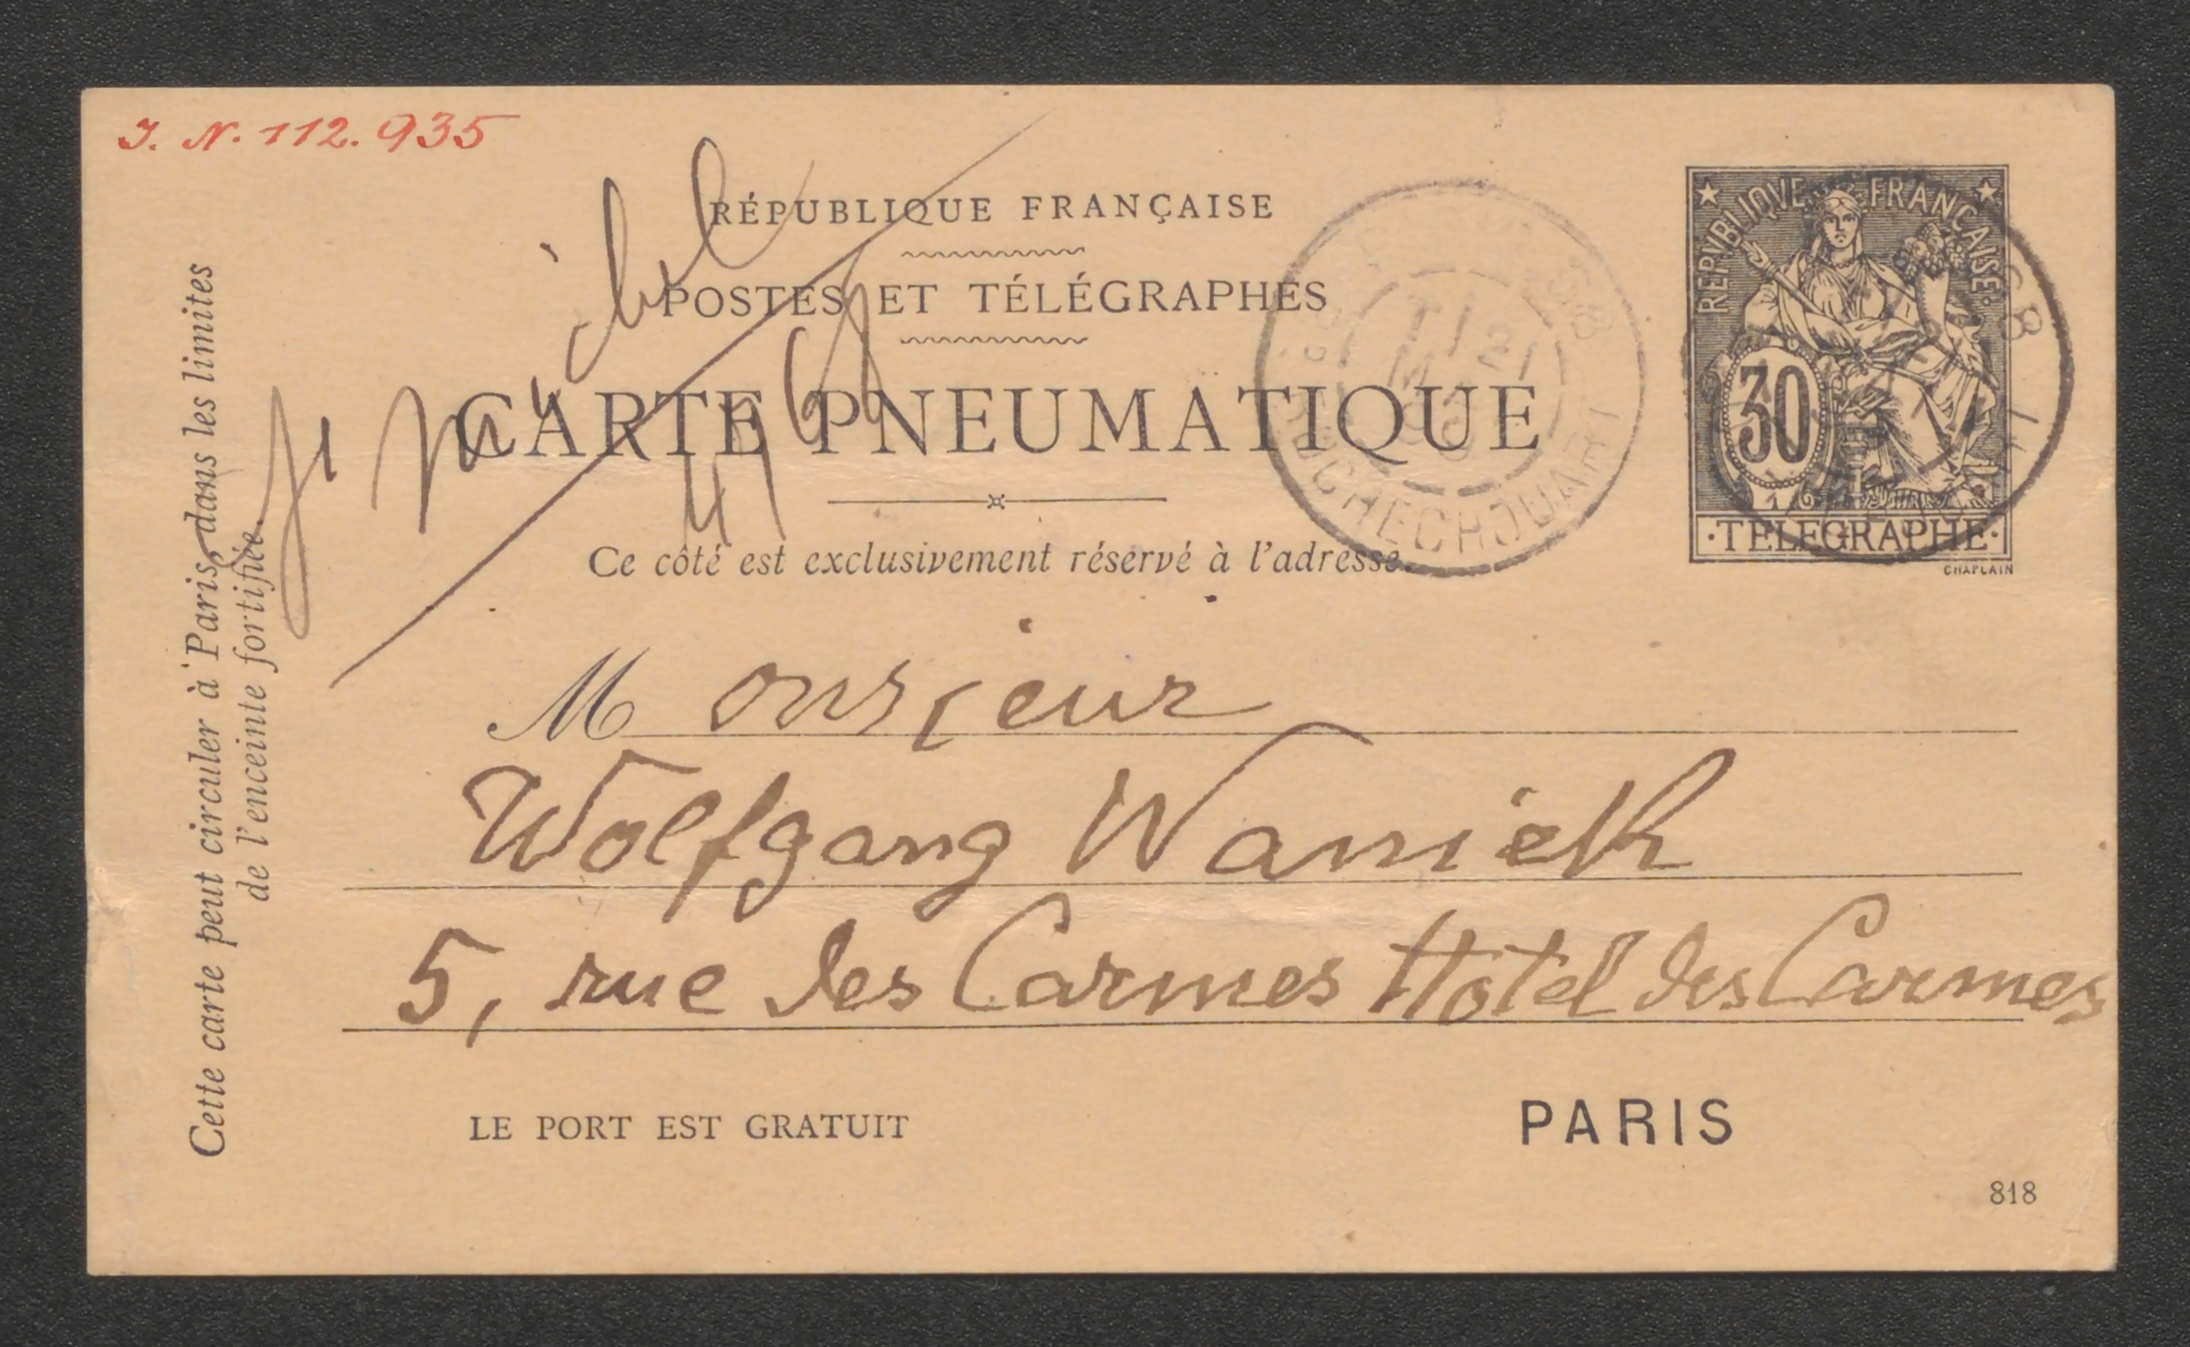 I. N. 112.935
RÉPUBLIQUE FRANÇAISE
POSTES ET TÉLÉGRAPHES
CARTE PNEUMATIQUE
Ce côté est exclusivement réservé à l'adresse.
Cette carte peut circuler à Paris, dans les limites
de l'enceinte fortifiée.
REPVBLIQVE FRANÇAISE
30
·TELEGRAPHE·
CHAPLAIN
ROCHECHOUART
St Michel
Monsieur
Wolfgang Waniek
5, rue des Carmes Hôtel des Carmes
LE PORT EST GRATUIT
PARIS
818